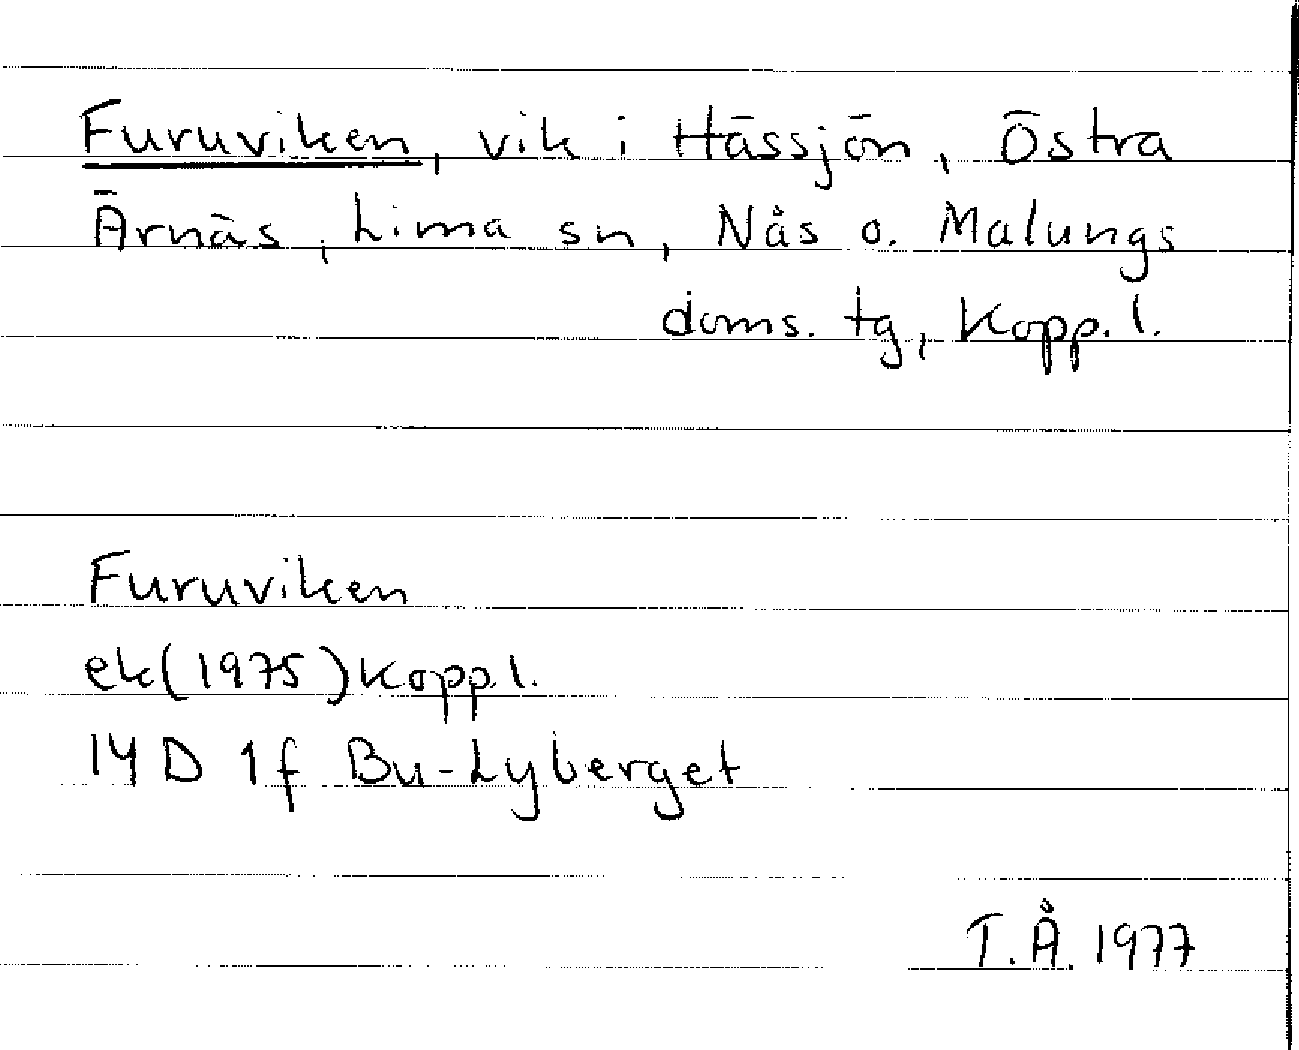 Furuviken, vik i Hässjön, Östra
Ärnäs, Lima sn, Nås o. Malungs
doms. tg, Kopp. l.
Furuviken
ek(1975)Kopp.l.
14 D 1f Bu-Lyberget
T.Å. 1977